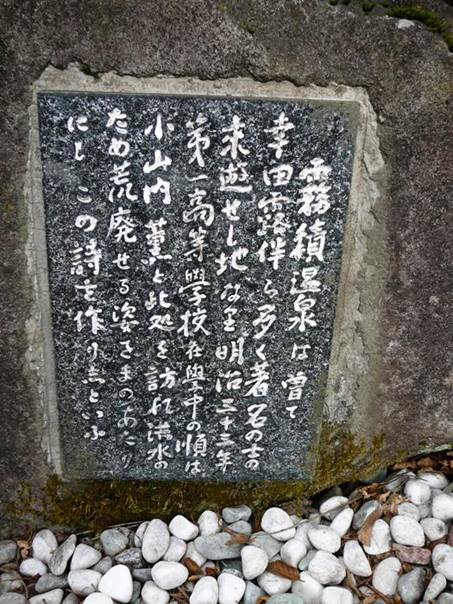 霧積温泉は曽て
幸田露伴ら多く著名の士の
来遊せし地なり明治三十三年
第一高等學校在學中の順は
小山内 薫と此処を訪れ洪水の
ため荒廃せる姿をまのあたり
にし この詩を作りたといふ